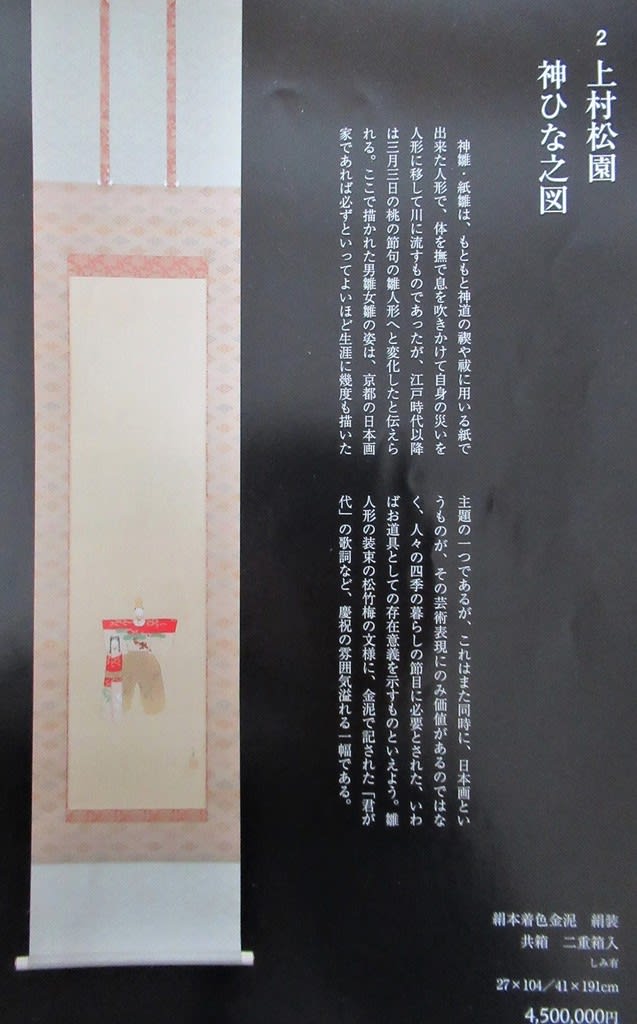 2 上村松園
神ひな之図
神雛・紙雛は、もともと神道の禊や祓に用いる紙で
出来た人形で、体を撫で息を吹きかけて自身の災いを
人形に移して川に流すものであったが、江戸時代以降
は三月三日の桃の節句の雛人形へと変化したと伝えら
れる。ここで描かれた男雛女雛の姿は、京都の日本画
家であれば必ずといってよいほど生涯に幾度も描いた
主題の一つであるが、これはまた同時に、日本画とい
うものが、その芸術表現にのみ価値があるのではな
く、人々の四季の暮らしの節目に必要とされた、いわ
ばお道具としての存在意義を示すものといえよう。雛
人形の装束の松竹梅の文様に、金泥で記された「君が
代」の歌詞など、慶祝の雰囲気溢れる一幅である。
絹本着色金泥 絹装
共箱 二重箱入
しみ有
27×104／41×191cm
4,500,000円